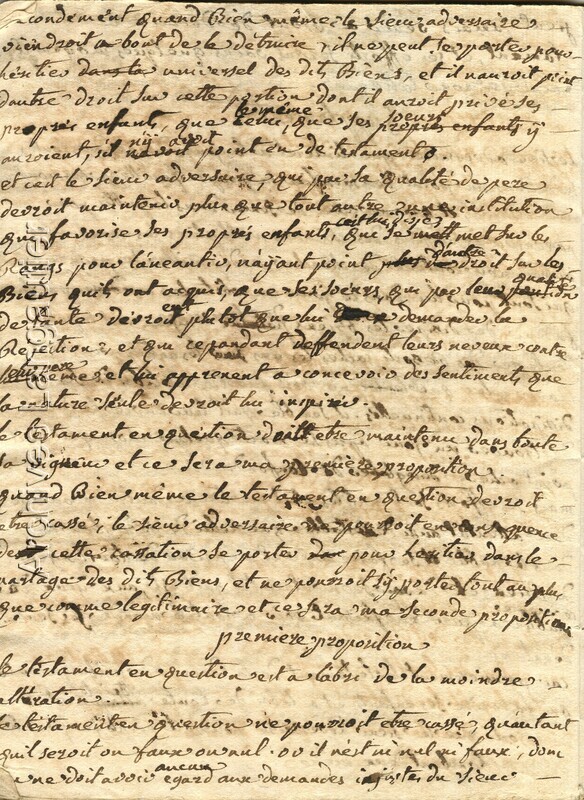 condement quand Bien même le sieur adversaire
viendroit a bout de le detruire, il ne peut se porter pour
héritier universel des dits Biens, et il nauroit point
dautre droit sur cette portion dont il auroit privé ses
propres enfants, que celui, que ses soeurs propres enfants y
auroient, sil ny avoit point eu de testament.
et cest le sieur adversaire, qui par sa qualité de pere
devroit maintenir plus que tout autre une institution
que favorise ses propres enfants, cest lui disje, qui se met sur les
Rangs pour laneantir, nayant point dautre droit sur les
Biens quils ont acquis, que ses soeurs, qui par leur qualité
de tante devroient plutot que lui demander la
Repetition, et qui cependant deffendent leurs neveux contre
leur pere même, et lui apprenent a concevoir des sentiments que
la nature seule devroit lui inspirer.
le testament en question doit etre maintenu dans toute
sa vigueur et ce sera ma premiere proposition
quand Bien même le testament en question devroit
etre cassé, le sieur adversaire ne pourroit en consequence
de cette cassation se porter pour heritier dans le
partage des dits Biens, et ne pourroit sy porter tout au plus
que comme legitimaire et ce sera ma seconde proposition
premiere proposition
le testament en question est a labri de la moindre
alteration.
le testament en question ne pourroit etre cassé, quautant
quil seroit ou faux ou nul. or il nest ni nul ni faux, donc
on ne doit avoir aucun egard aux demandes injustes du sieur
Archives Lagardiner